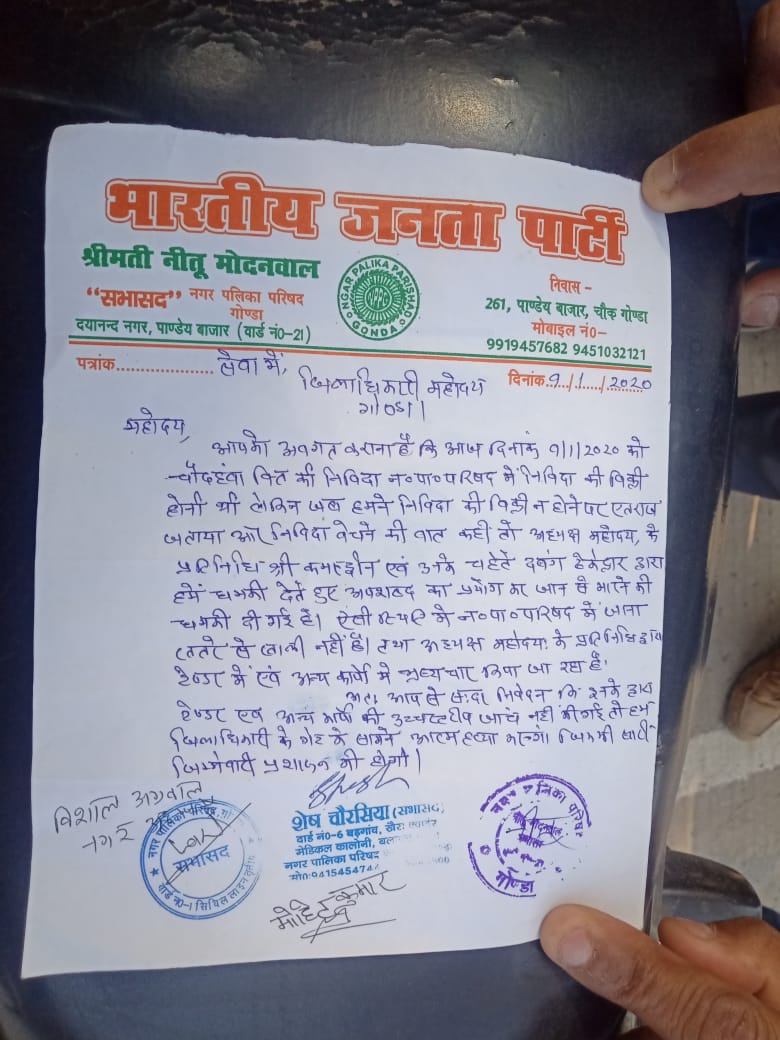 भारतीय जनता पार्टी
श्रीमती नीतू मोदनवाल
"सभासद" नगर पालिका परिषद
गोण्डा
दयानन्द नगर, पाण्डेय बाजार (वार्ड नं0-21)
NGAR PALIKA PARISHAD
GONDA
निवास -
261, पाण्डेय बाजार, चौक गोण्डा
मोबाइल नं0-
9919457682 9451032121
पत्रांक.................. सेवा में,
दिनांक 9/1/2020
जिलाधिकारी महोदय
गोण्डा।
महोदय,
आपको अवगत कराना है कि आज दिनांक 9/1/2020 को
चौदहवां वित्त की निविदा न०पा०परिषद में निविदा की बिक्री
होनी थी लेकिन जब हमने निविदा की बिक्री न होने पर एतराज
जताया और निविदा बेचने की बात कही तो अध्यक्ष महोदय, के
प्रतिनिधि श्री कमरुद्दीन एवं उनके चहेते दबंग ठेकेदार द्वारा
हमें धमकी देते हुए अपशब्द का प्रयोग कर जान से मारने की
धमकी दी गई है। ऐसी स्थिति में न०पा०परिषद में जाना
खतरे से खाली नहीं है। तथा अध्यक्ष महोदय के प्रतिनिधि द्वारा
टेण्डर में एवं अन्य कार्यो में भ्रष्टाचार किया जा रहा है।
अतः आप से सादर निवेदन कि इनके द्वारा
टेण्डर एवं अन्य कार्यो की उच्चस्तरीय जांच नहीं की गई तो हम
जिलाधिकारी के गेट के सामने आत्महत्या करूंगा जिसकी सारी
जिम्मेवारी प्रशासन की होगी।
विशाल अग्रवाल
नगर
नगर पालिका परिषद, गो
सभासद
वार्ड नं0-1 सिविल लाइन
शेष चौरसिया (सभासद)
वार्ड नं0-6 बड़गांव,
मेडिकल कालोनी,
नगर पालिका परिषद
मो0:-941545474
मोहित कुमार
नगर पालिका परिषद
गोण्डा